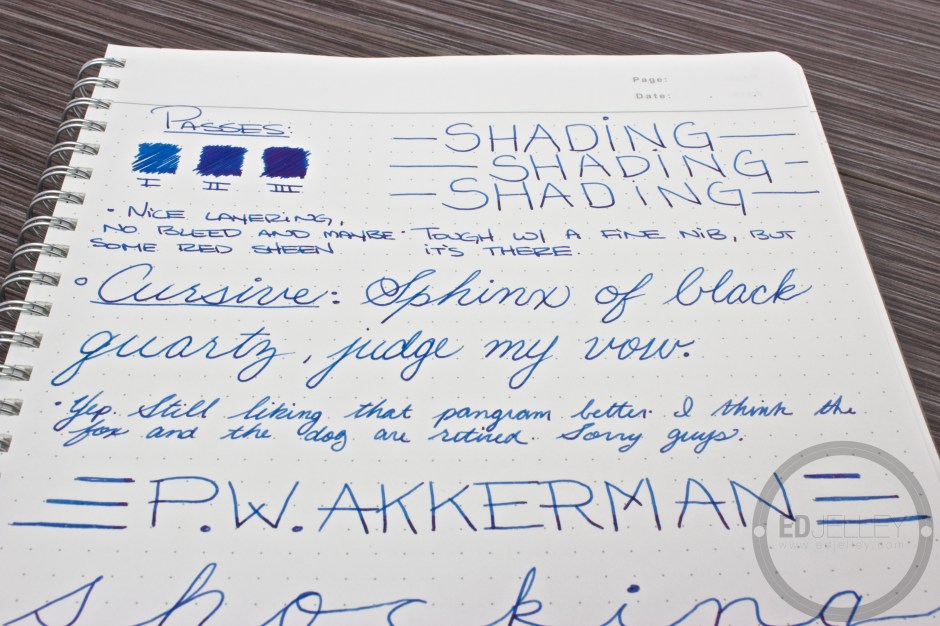 Page:
Date:
PASSES:
I II III
• NICE LAYERING,
NO BLEED AND MAYBE
SOME RED SHEEN
— SHADING —
— SHADING —
— SHADING —
• TOUGH W/ A FINE NIB, BUT
IT'S THERE.
• Cursive: Sphinx of black
quartz, judge my vow.
• Yep. Still liking that pangram better. I think the
fox and the dog are retired. Sorry guys.
P.W. AKKERMAN
shocking
EDJELLEY
www.edjelley.com